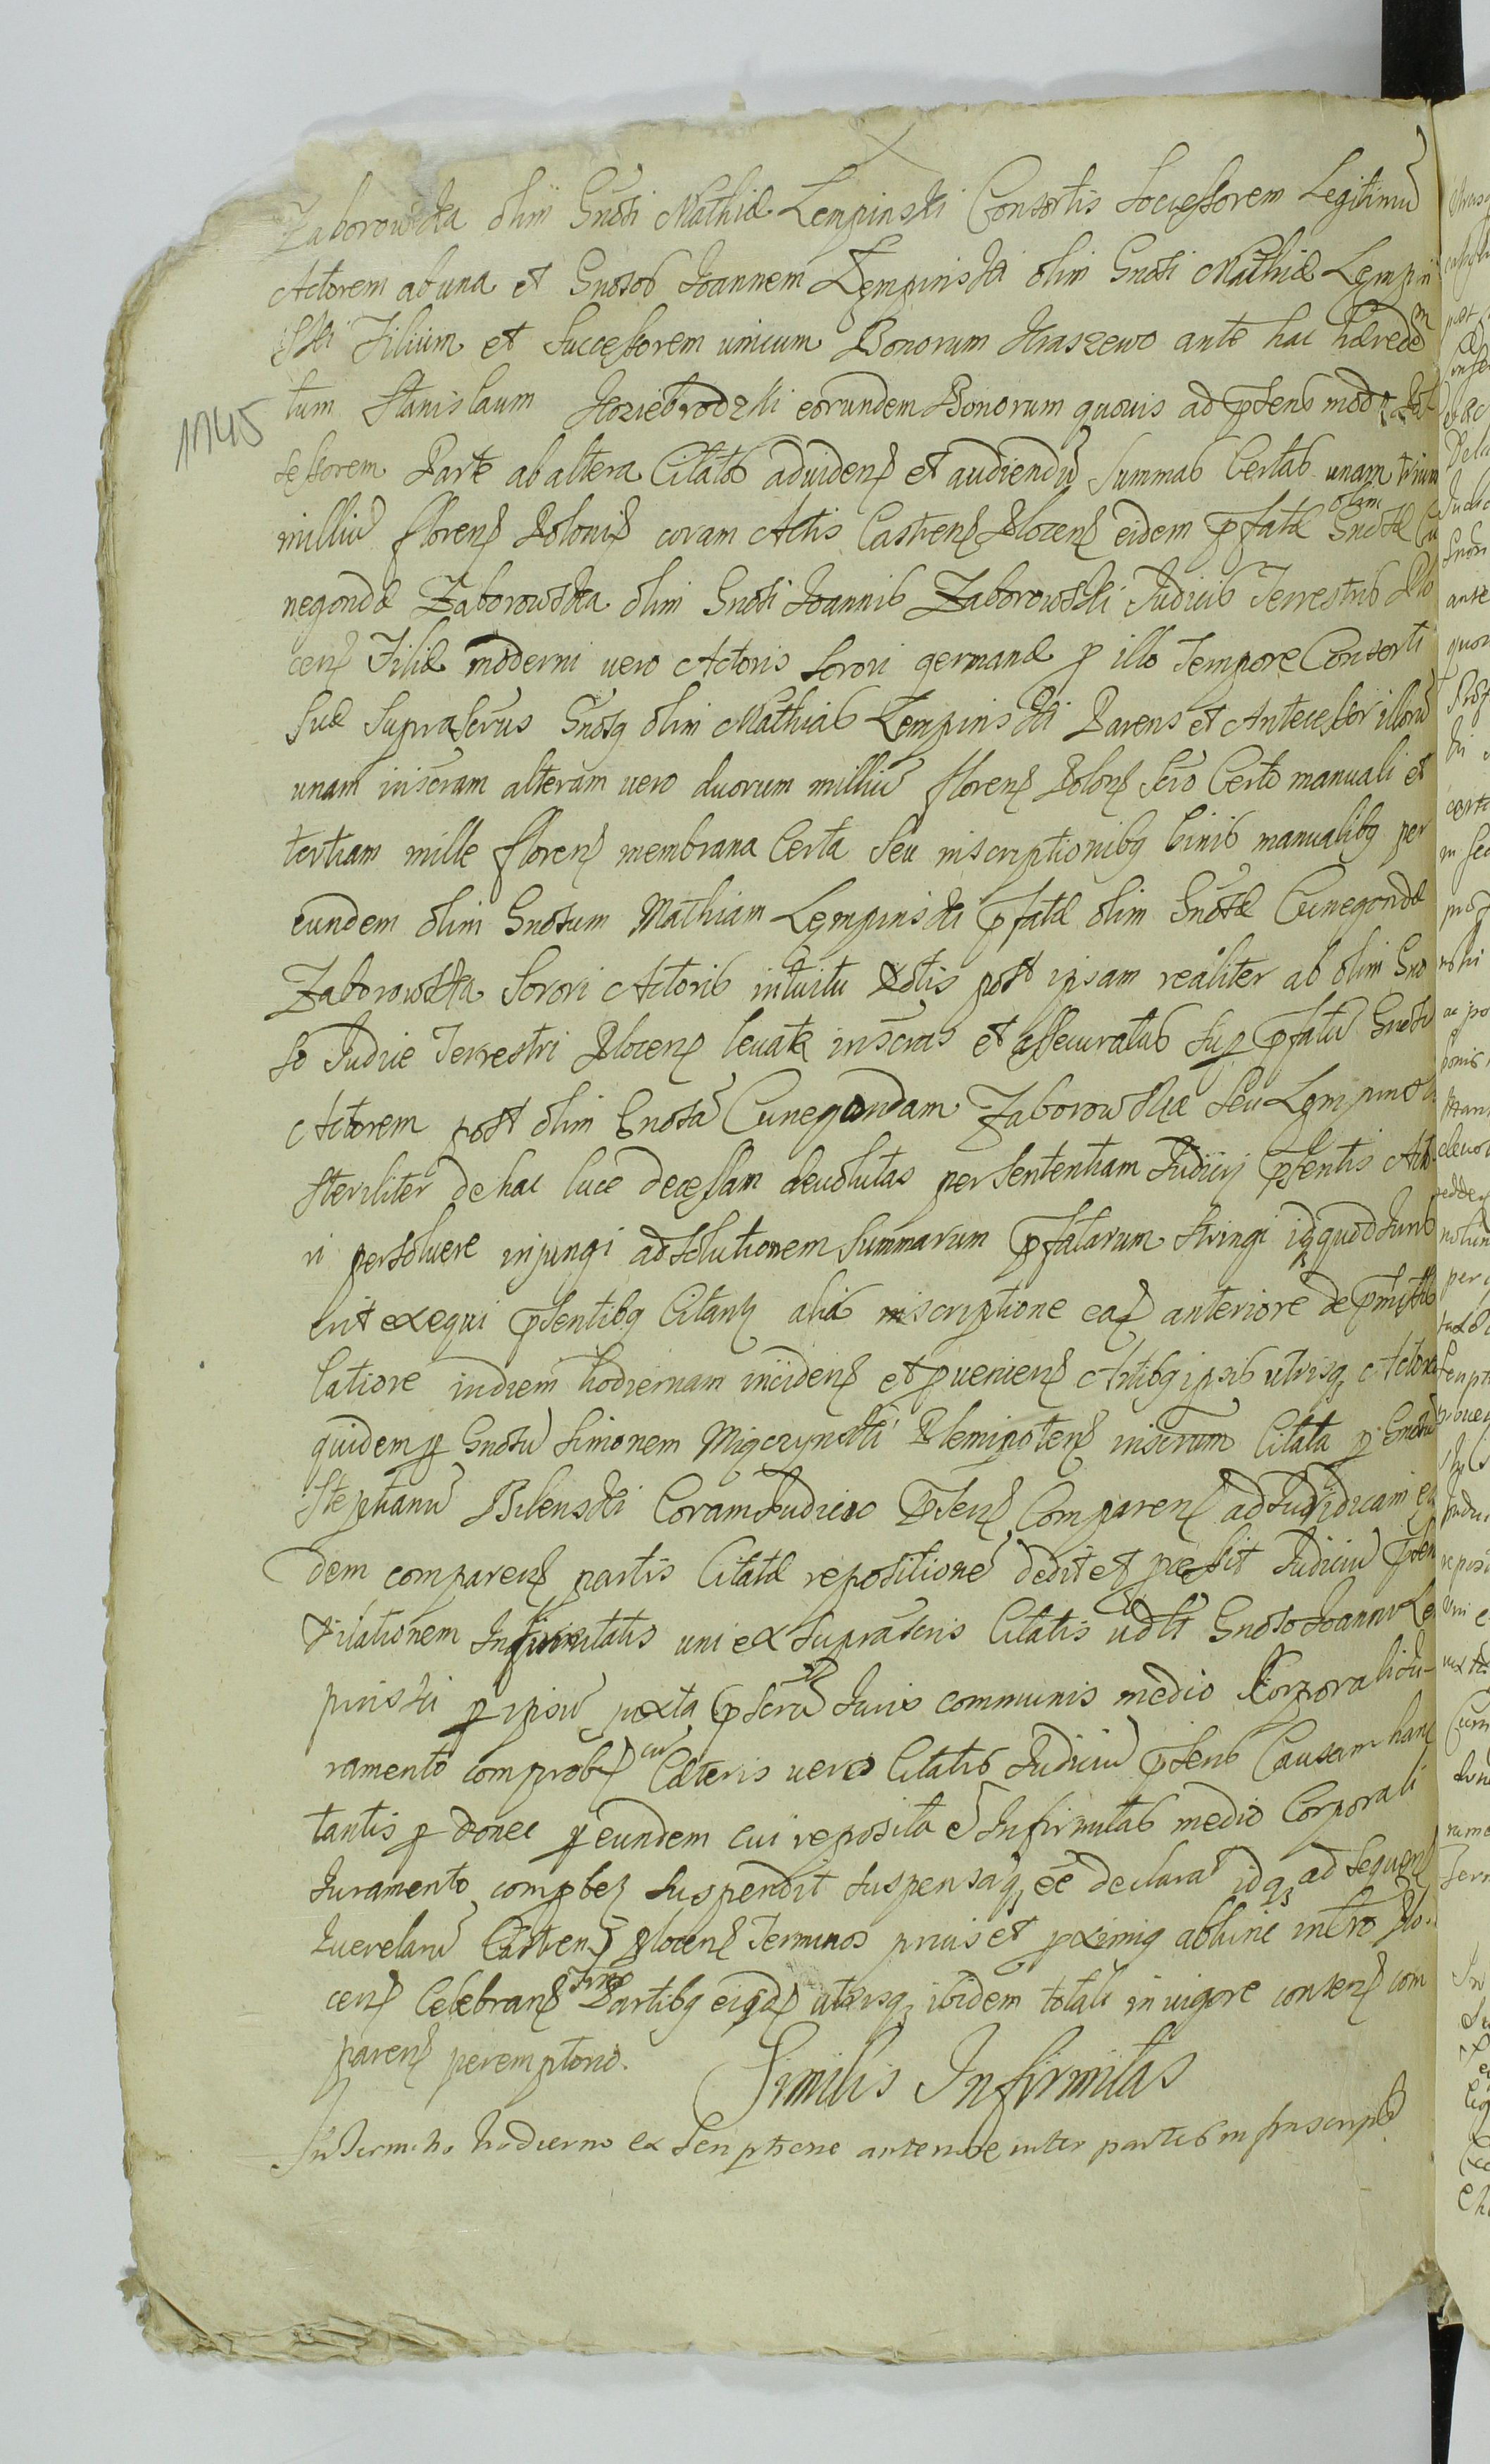 Zaborowska olim Gnosi Mathiæ Lempinski Consortis Soccessorem Legitimũ
Actorem ab una et Gnosos Joannem Lempinski olim Gnosi Mathiæ Lempin
ski Filium et Successorem unicum Bonorum Kraszewo ante hac hæredem
tum Stanislaum Koziebrodzki eorundem Bonorum quovis ad pñsens modo Pos-
sessorem Parte ab altera Citatos ad videnđ et audiendũ Summas Certas unam trium
1145
milliũ florenꝭ Poloniꝭ coram Actis Castrenꝭ Plocenꝭ eidem pfatæ olim Gnosæ Cu
negondæ Zaborowska olim Gnosi Joannis Zaborowski Judicis Terrestris Plo
cenꝭ Filiæ moderni vero Actoris Sorori germanæ p illo Tempore Consorti
Suæ Suprascrus Gnosq olim Mathias Lempinski Parens et Antecessor illorũ
unam inscram alteram vero duorum milliũ florenꝭ Polonꝭ Scro Certo manuali et
tertiam mille florenꝭ membrana Certa Seu inscriptionibq binis manualibq per
eundem olim Gnosum Mathiam Lempinski pfatæ olim Gnosæ Cunegondæ
Zaborowska Sorori Actoris intuitu dotis post ipsam realiter ab olim Gno
so Judice Terrestri Plocenꝭ levatæ inscras et assecuratas Sup pfatũ Gnosũ
Actorem post olim Gnosã Cunegondam Zaborowska Seu Lempinska
steriliter de hac luce decessam devolutas per Sententiam Judicij psentis Acto
ri persolvere injungi ad solutionem Summarum pfatarum stringi idq quod Juris
erit exequi psentibq Citanꝭ aliâs inscriptione eaꝭ anteriore de pmissis
latiore in diem hodiernam incidenꝭ et pvenienꝭ Artibq ipsis utrisq Actorea
quidem p Gnosũ Simonem Miączynski Plenipotenꝭ inscrum Citata p Gnosũ
Stephanũ Bilenski Coram Judicio Psenꝭ Comparenꝭ ad Juridicam ea
dem comparenꝭ partis Citatæ repositionẽ dedit et pcessit Judiciũ psens
Dilationem Infirmitatis uni ex Suprascris Citatis vdlt Gnoso Joanni Le
pinski p ipsũ juxta pscrũ Juris communis medio Corporali Ju-
ramento comprobꝭ cũ Cæteris vero Citatis Judiciũ psens Causam hanc
tantis p donec p eundem cui reposita ẽ Infirmitas medio Corporali
Juramento compbeꝫ Suspendit Suspensaq eẽ declarat idq ad Sequenꝭ
Querelarũ Castrenꝭ Plocenꝭ Terminos prius et pximq abhinc intro Plo-
cenꝭ Celebranꝭ Trno Partibq eiqdꝫ utrisq ibidem totali in vigore consenꝭ com
parenꝭ peremptorio.
Similis Infirmitas
In Termino hodierno ex Scriptione anteriore inter partes infrascriptas